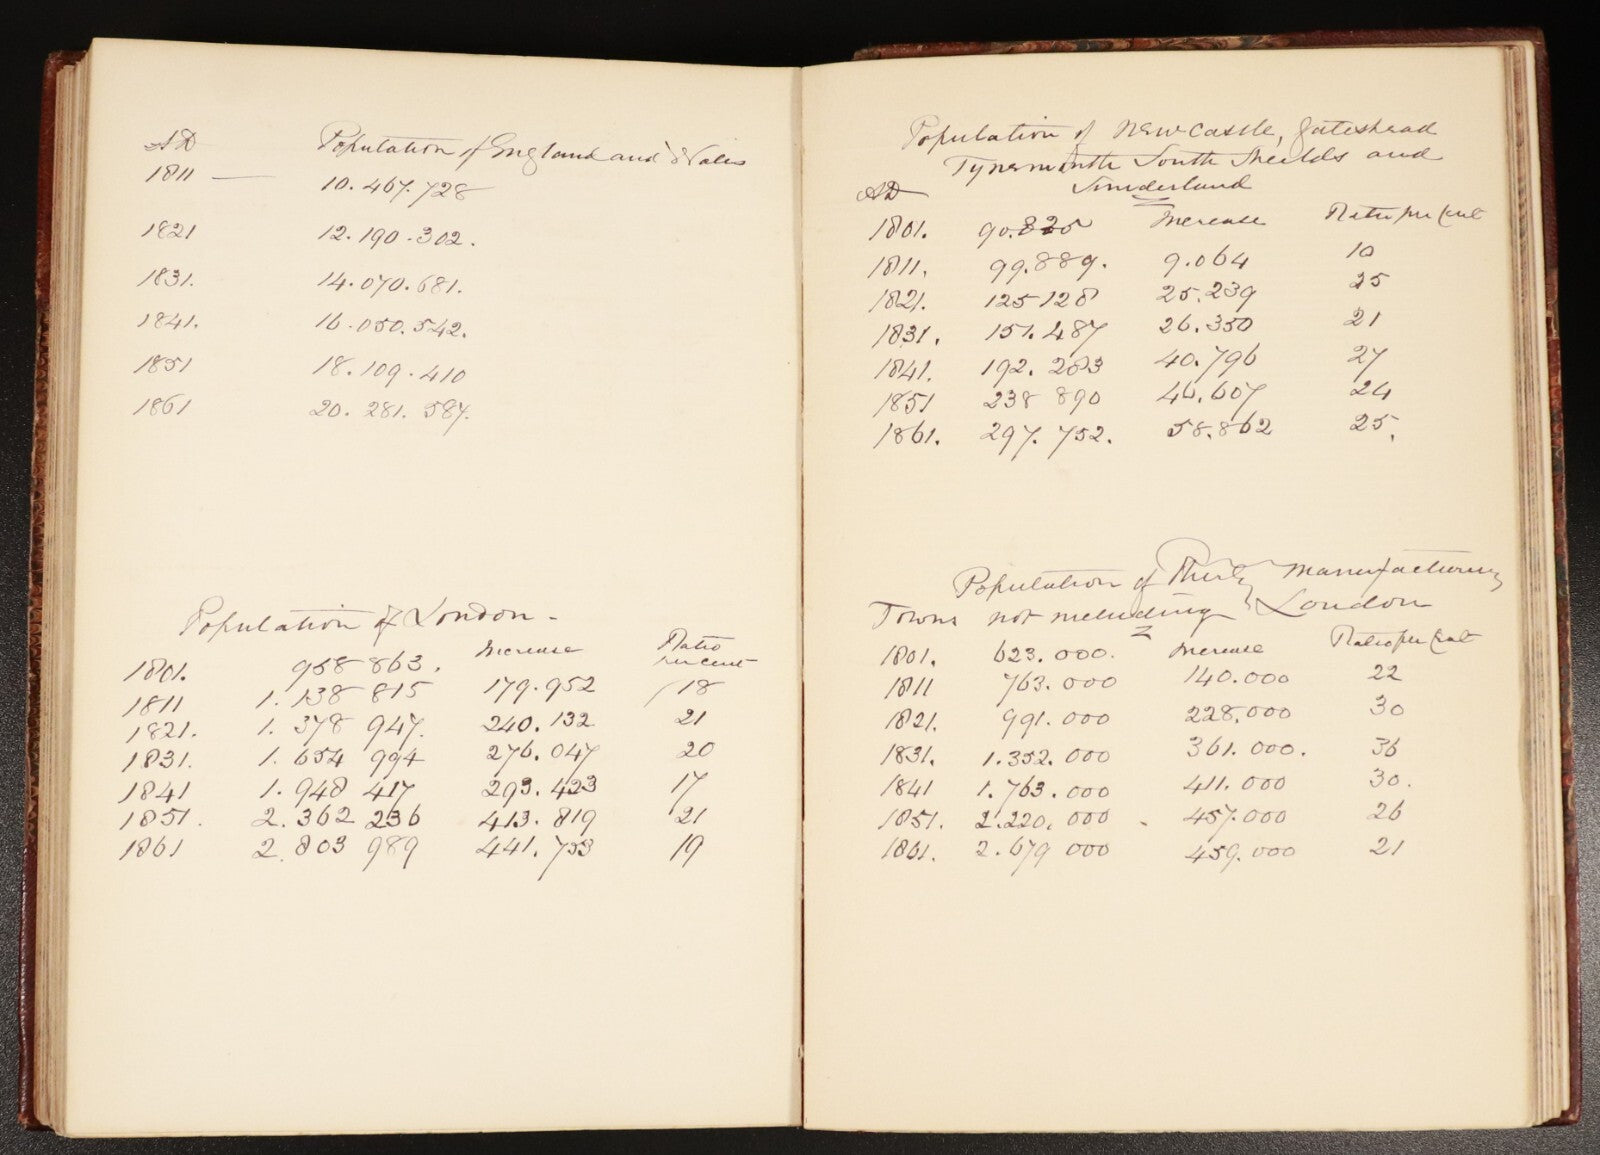 AD Population of England and Wales
1811 — 10.467.728
1821 12.190.302.
1831. 14.070.681.
1841. 16.050.542.
1851 18.109.410
1861 20.281.587.
Population of London -
Increase Ratio per cent
1801. 958 863.
1811 1.138 815 179.952 18
1821. 1.378 947. 240.132 21
1831. 1.654 994 276.047 20
1841 1.948 417 293.423 17
1851. 2.362 236 413.819 21
1861 2.803 989 441.753 19
Population of Newcastle, Gateshead
Tynemouth South Sheilds and
Sunderland
AD
1801. 90.825 Increase Ratio per Cent
1811. 99.889. 9.064 10
1821. 125 128 25.239 25
1831. 151.487 26.350 21
1841. 192.283 40.796 27
1851 238 890 46.607 24
1861. 297.752. 58.862 25.
Population of Thirty manufacturing
Towns not including London
1801. 623.000. Increase Ratio per Cent
1811 763.000 140.000 22
1821. 991.000 228,000 30
1831. 1.352.000 361.000. 36
1841 1.763.000 411.000 30.
1851. 2.220,000 - 457.000 26
1861. 2.679 000 459.000 21